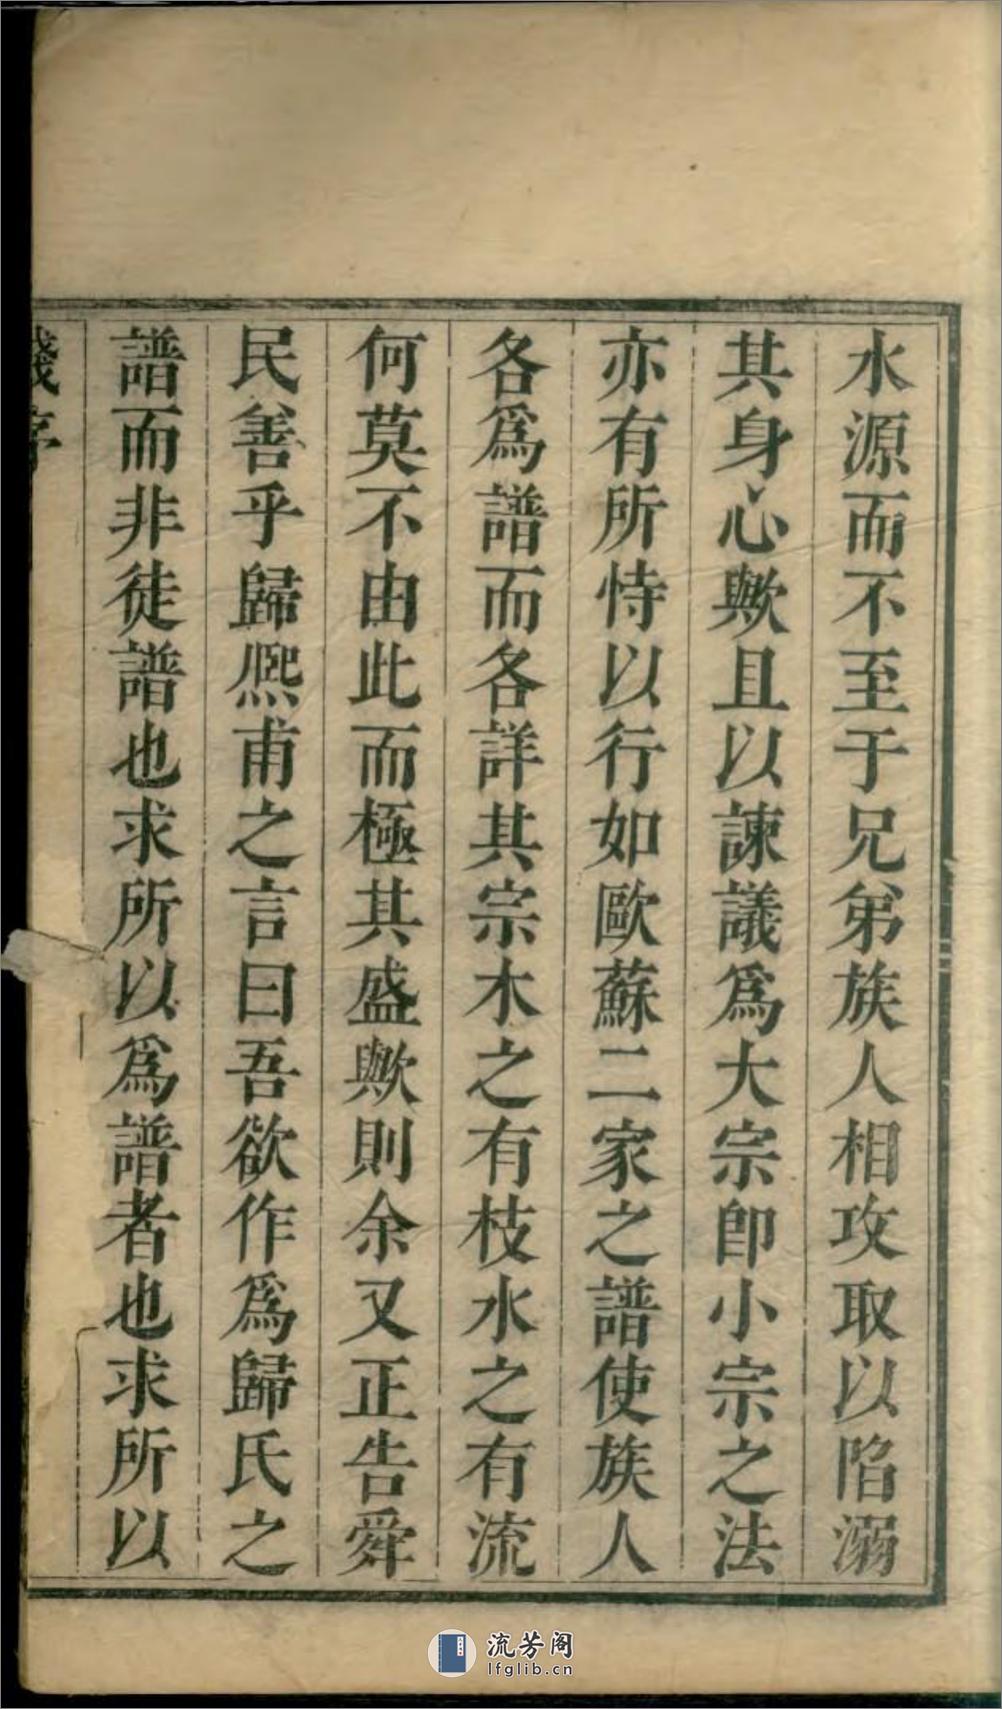 水源而不至于兄弟族人相攻取以陷溺
其身心歟且以諫議爲大宗卽小宗之法
亦有所恃以行如歐蘇二家之譜使族人
各爲譜而各詳其宗木之有枝水之有流
何莫不由此而極其盛歟則余又正告舜
民善乎歸熙甫之言曰吾欲作爲歸氏之
譜而非徒譜也求所以爲譜者也求所以
序
流芳阁
lfglib.cn